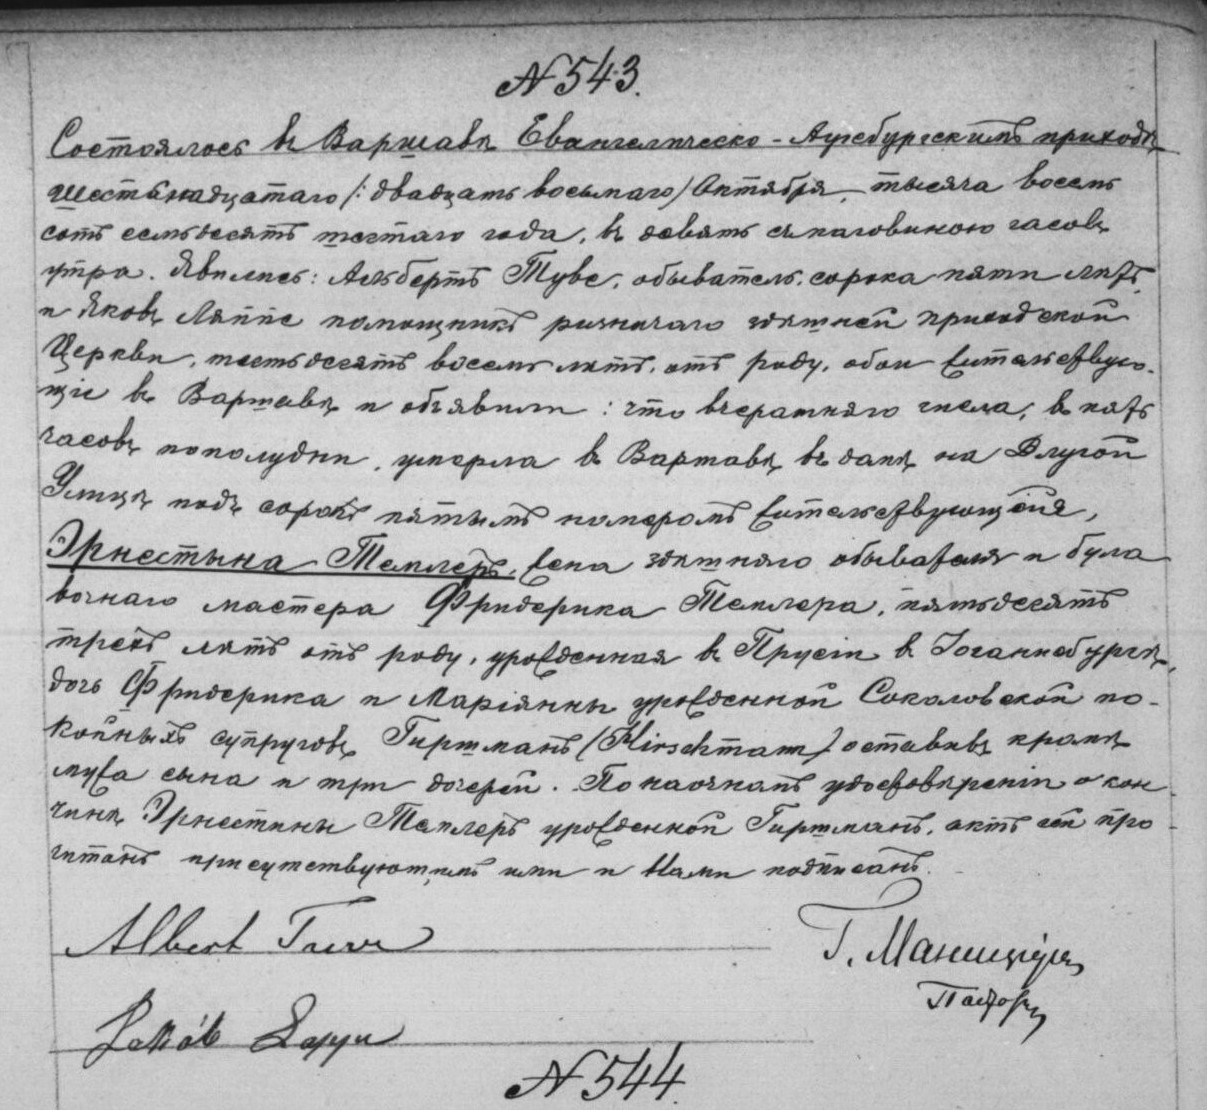 N 543.
Состоялось въ Варшавѣ Евангелическо-Аугсбургскимъ приходѣ
шестьнадцатаго /: двадцать восьмаго) Октября, тысяча восемь
сотъ семьдесятъ шестаго года, въ девять съ половиною часовъ
утра. Явились: Альбертъ Туве, обыватель, сорока пяти лѣтъ,
и Яковъ Ляппе помощникъ ризничаго здѣшней приходской
Церкви, шестьдесятъ восемь лѣтъ, отъ роду, обои жительствую-
щіе въ Варшавѣ и объявили: что вчерашняго числа, въ пять
часовъ пополудни, умерла въ Варшавѣ въ домѣ на Длугой
Улицѣ подъ сорокъ пятымъ номеромъ жительствующая,
Эрнестына Темлеръ, жена здѣшняго обывателя и була
вочнаго мастера Фридерика Темлера, пятьдесятъ
трехъ лѣтъ отъ роду, урожденная въ Прусіи въ Іоганнсбургѣ,
дочь Фридерика и Маріянны урожденной Соколовской по-
койныхъ супруговъ Гиршманъ (Hirschmann) оставивъ кромѣ
мужа сына и три дочерей. По наочномъ удостовѣреніи о кон-
чинѣ Эрнестины Темлеръ урожденной Гиршманъ, актъ сей про-
читанъ присутствующимъ ими и Нами подписанъ.
Albert Tuve
Г. Маницiусъ
Пасторъ
Jakób Lappe
N 544.